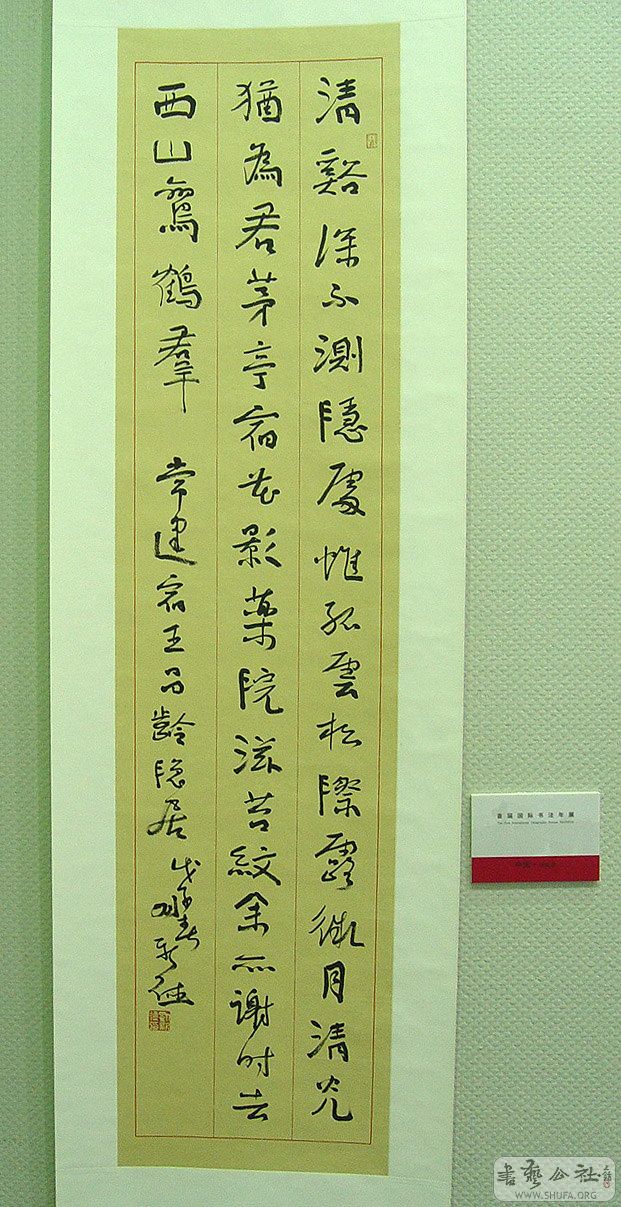 清谿深不測隱處惟孤雲松際露微月清光
猶為君茅亭宿花影藥院滋苔紋余亦謝時去
西山鸞鶴羣 常建宿王昌齡隐居 戊子春
首届国际书法年展
书艺公社
WWW.SHUFA.ORG